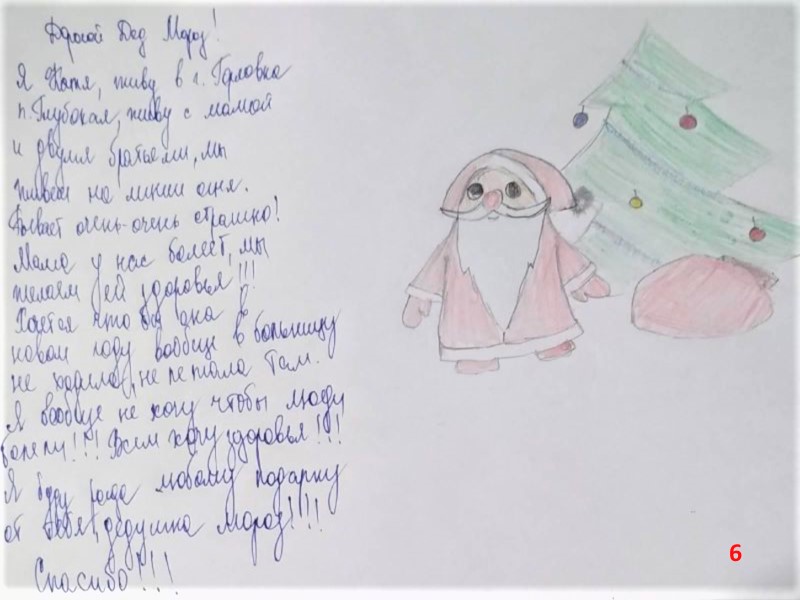 Дорогой Дед Мороз!
Я Катя, живу в г. Горловка
п. Глубокая, живу с мамой
и двумя братьями, мы
живём на линии огня.
Бывает очень-очень страшно!
Мама у нас болеет, мы
желаем ей здоровья!!!
Хочется что бы она в
новом году вообще в больницу
не ходила, не лежала там.
Я вообще не хочу чтобы люди
болели!!! Всем хочу здоровья!!!
Я буду рада любому подарку
от тебя, дедушка Мороз!!!!
Спасибо!!!
6